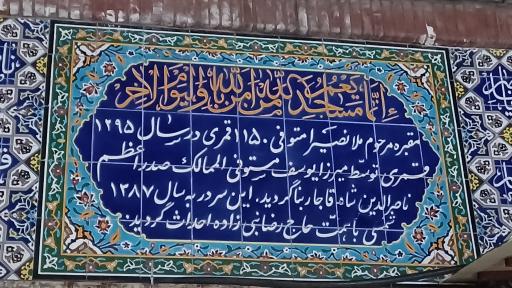 إنما يعمر مساجد الله من آمن بالله والیوم الآخر
مقبره مرحوم ملا نصیرا متوفی ۱۱۵۰ قمری در سال ۱۲۹۵
قمری توسط میرزا یوسف مستوفی الممالک صدراعظم
ناصرالدین شاه قاجار بنا گردید. این سردر به سال ۱۳۸۷
شمسی با همت حاج رضا نبی زاده احداث گردید.